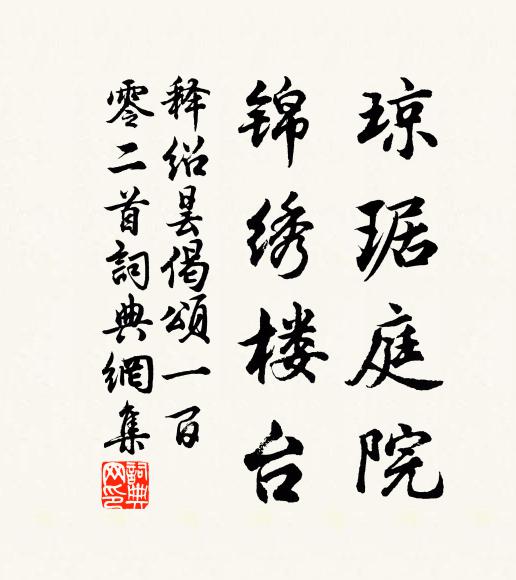 琼琚庭院
锦绣楼台
释绍昙偈頌一百
零二首詞典網集
詞典网印